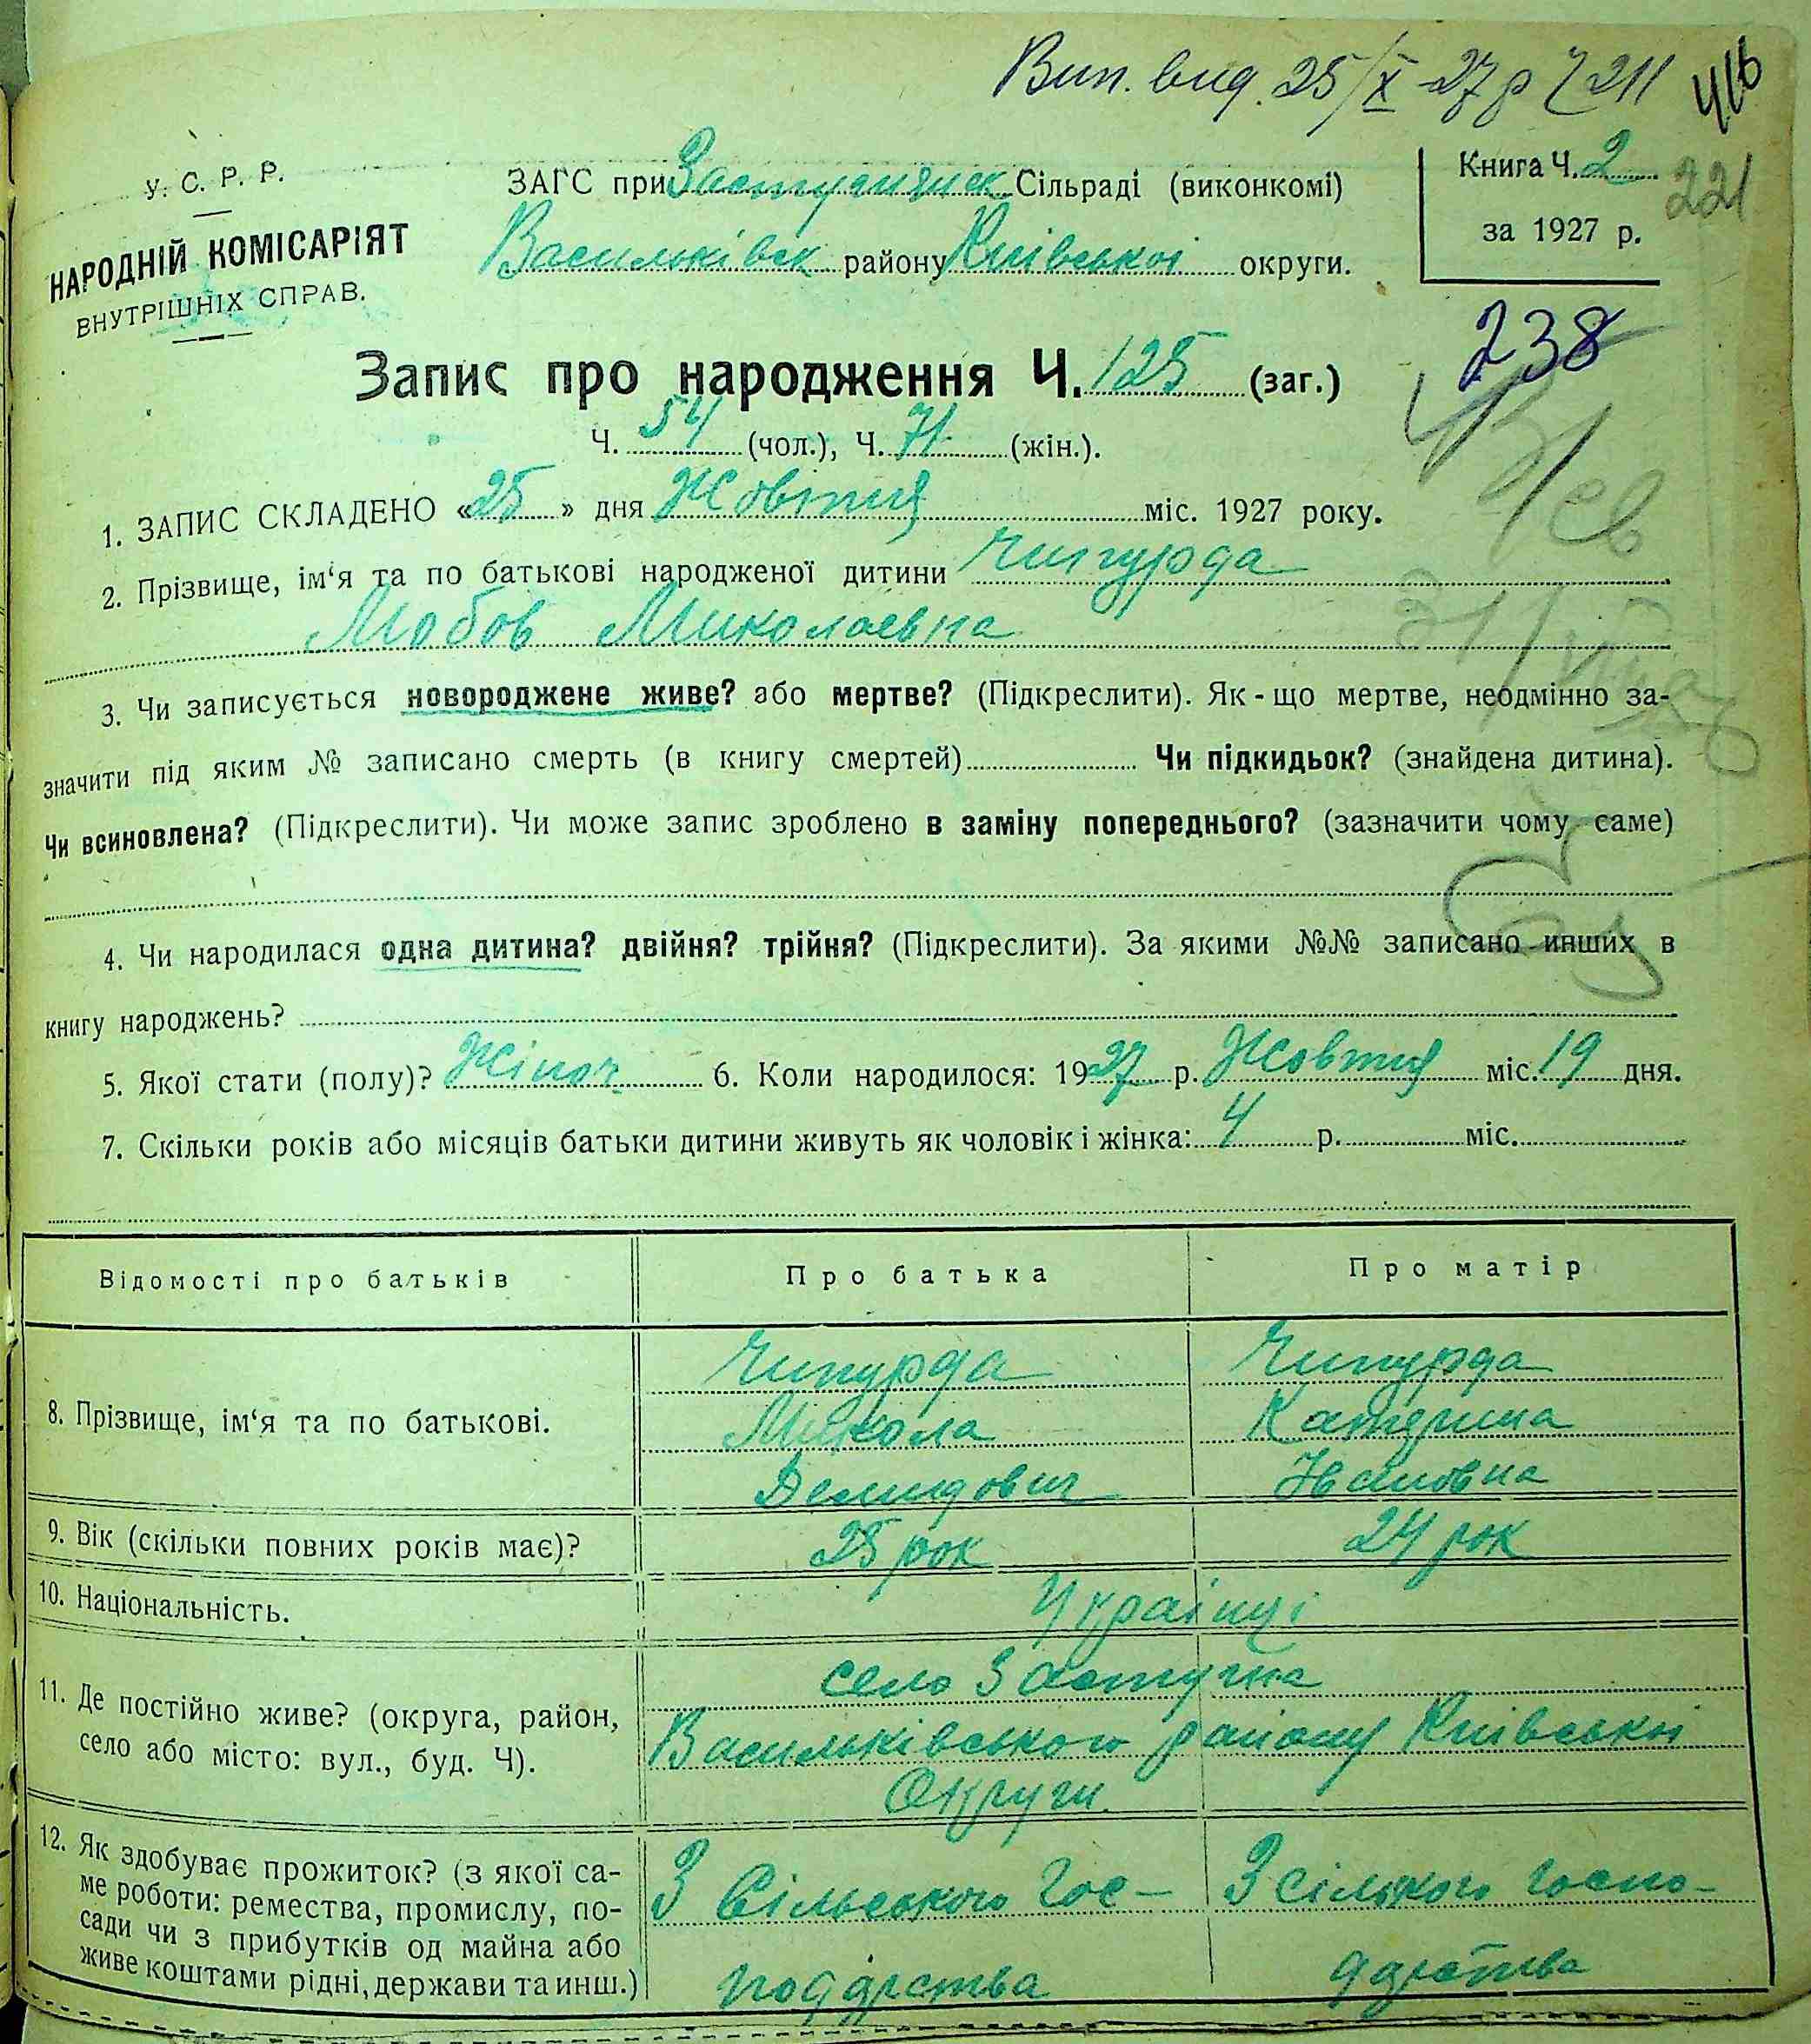 Вип. вид. 25/X 27 р 211
416
У. С. Р. Р.
НАРОДНІЙ КОМІСАРІЯТ
ВНУТРІШНІХ СПРАВ.
ЗАГС при Застугнянск Сільраді (виконкомі)
Васильківск району Київської округи.
Книга Ч. 2
за 1927 р.
221
238
Запис про народження Ч. 125 (заг.)
Ч. 54 (чол.), Ч. 71 (жін.).
1. ЗАПИС СКЛАДЕНО «25» дня Жовтня міс. 1927 року.
2. Прізвище, ім‘я та по батькові народженої дитини Чипурда
Любов Миколаевна
3. Чи записується новороджене живе? або мертве? (Підкреслити). Як-що мертве, неодмінно за-
значити під яким № записано смерть (в книгу смертей) Чи підкидьок? (знайдена дитина).
Чи всиновлена? (Підкреслити). Чи може запис зроблено в заміну попереднього? (зазначити чому саме)
4. Чи народилася одна дитина? двійня? трійня? (Підкреслити). За якими №№ записано инших в
книгу народжень?
5. Якої стати (полу)? Жіноч 6. Коли народилося: 1927 р. Жовтня міс. 19 дня.
7. Скільки років або місяців батьки дитини живуть як чоловік і жінка: 4 р. міс.
Відомості про батьків Про батька Про матір
8. Прізвище, ім‘я та по батькові.
Чипурда Чипурда
Микола Катерина
Демидович Івановна
9. Вік (скільки повних років має)? 25 рок 24 рок
10. Національність. Українці
11. Де постійно живе? (округа, район,
село або місто: вул., буд. Ч).
село Застугна
Васильківського району Київської
Округи
12. Як здобуває прожиток? (з якої са-
ме роботи: ремества, промислу, по-
сади чи з прибутків од майна або
живе коштами рідні, держави та инш.)
З Сільського гос- З сільского госпо-
подарства дарства